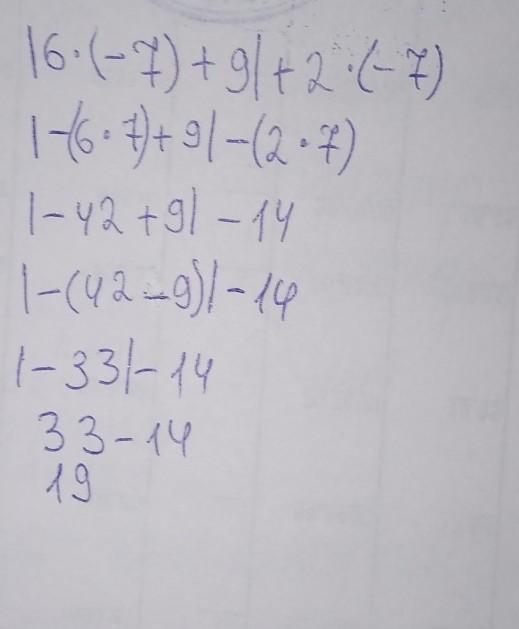 |6·(-7)+9|+2·(-7)
|-(6·7)+9|-(2·7)
|-42+9|-14
|-(42-9)|-14
|-33|-14
33-14
19